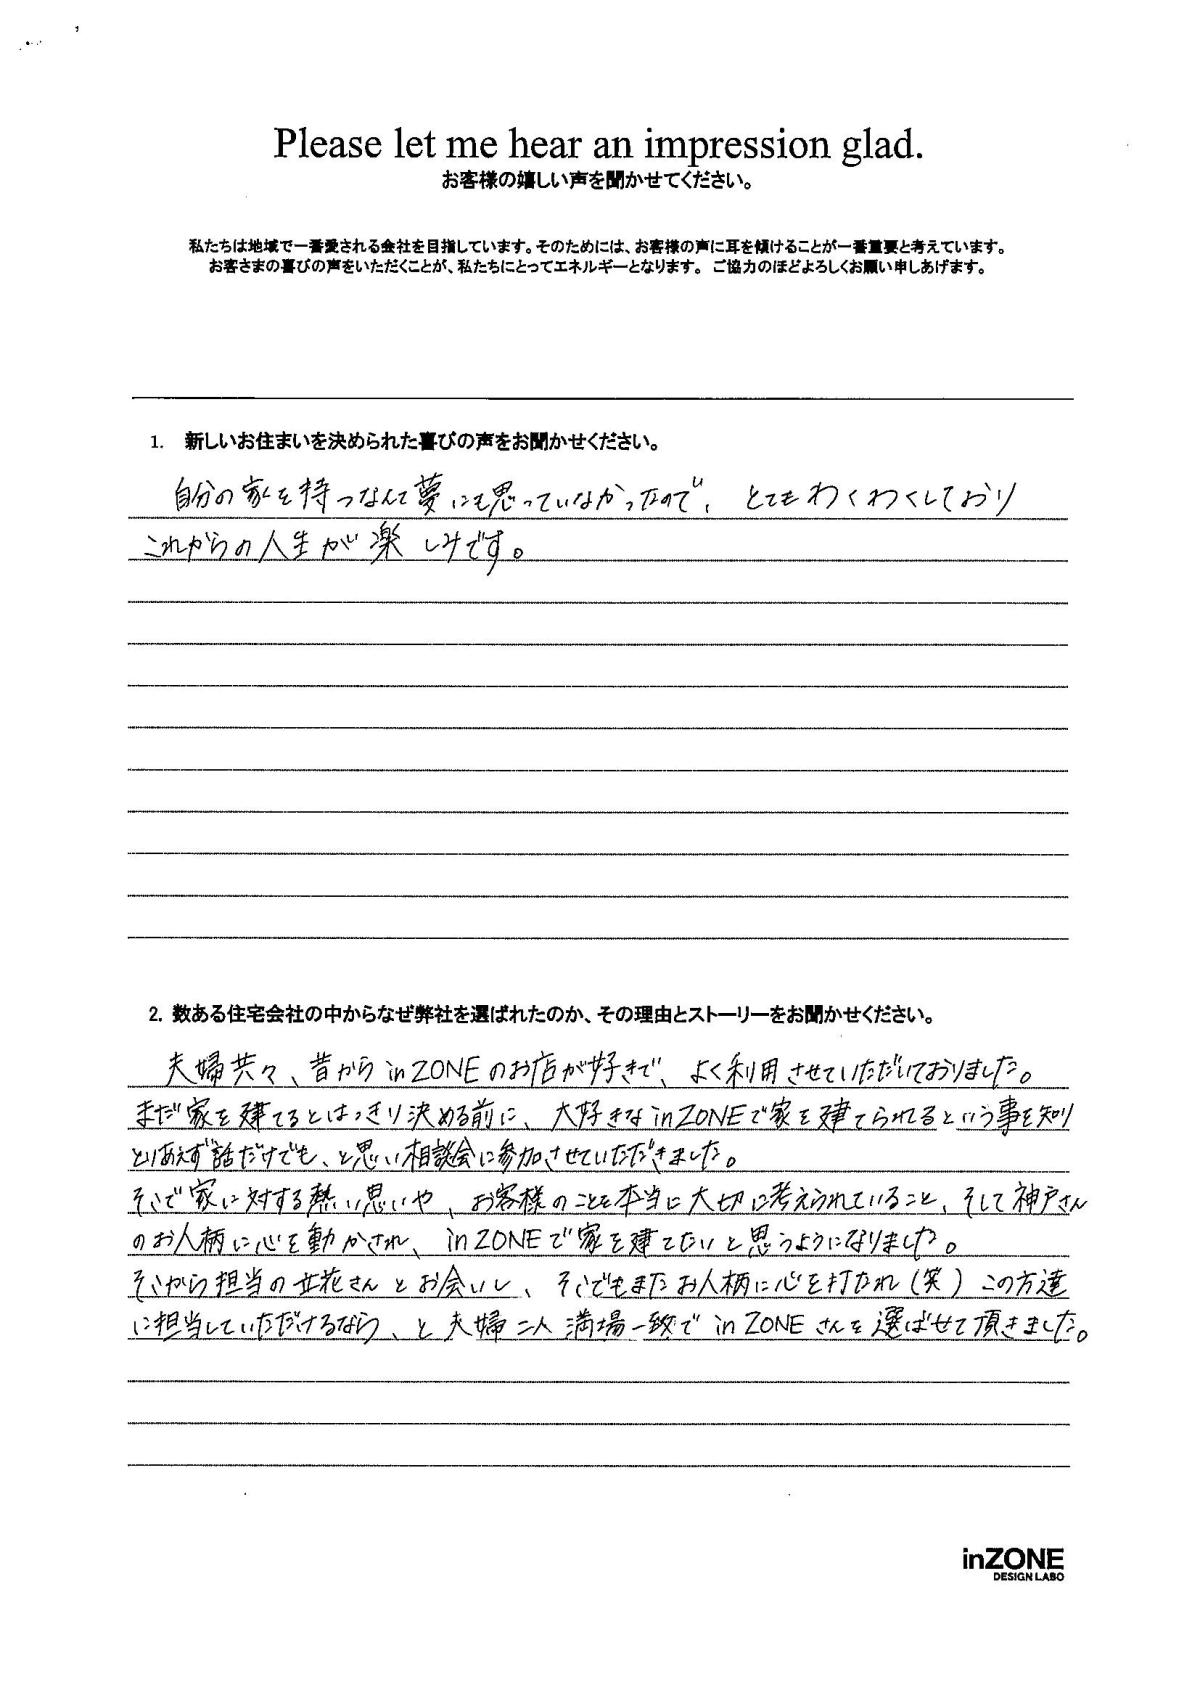 Please let me hear an impression glad.
お客様の嬉しい声を聞かせてください。
私たちは地域で一番愛される会社を目指しています。そのためには、お客様の声に耳を傾けることが一番重要と考えています。
お客さまの喜びの声をいただくことが、私たちにとってエネルギーとなります。 ご協力のほどよろしくお願い申しあげます。
1. 新しいお住まいを決められた喜びの声をお聞かせください。
自分の家を持つなんて夢にも思っていなかったので、とてもわくわくしており
これからの人生が楽しみです。
2. 数ある住宅会社の中からなぜ弊社を選ばれたのか、その理由とストーリーをお聞かせください。
夫婦共々、昔からinZONEのお店が好きで、よく利用させていただいておりました。
まだ家を建てるとはっきり決める前に、大好きなinZONEで家を建てられるという事を知り
とりあえず話だけでも、と思い相談会に参加させていただきました。
そこで家に対する熱い思いや、お客様のことを本当に大切に考えられていること、そして神戸さん
のお人柄に心を動かされ、inZONEで家を建てたいと思うようになりました。
そこから担当の立花さんとお会いし、そこでもまたお人柄に心を打たれ(笑)この方達
に担当していただけるなら、と夫婦二人満場一致でinZONEさんを選ばせて頂きました。
inZONE
DESIGN LABO